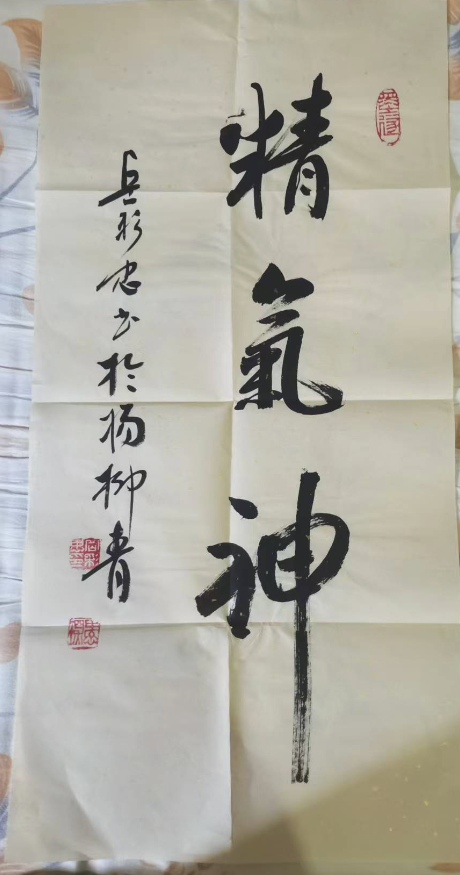 精氣神
岳彩忠书於杨柳青